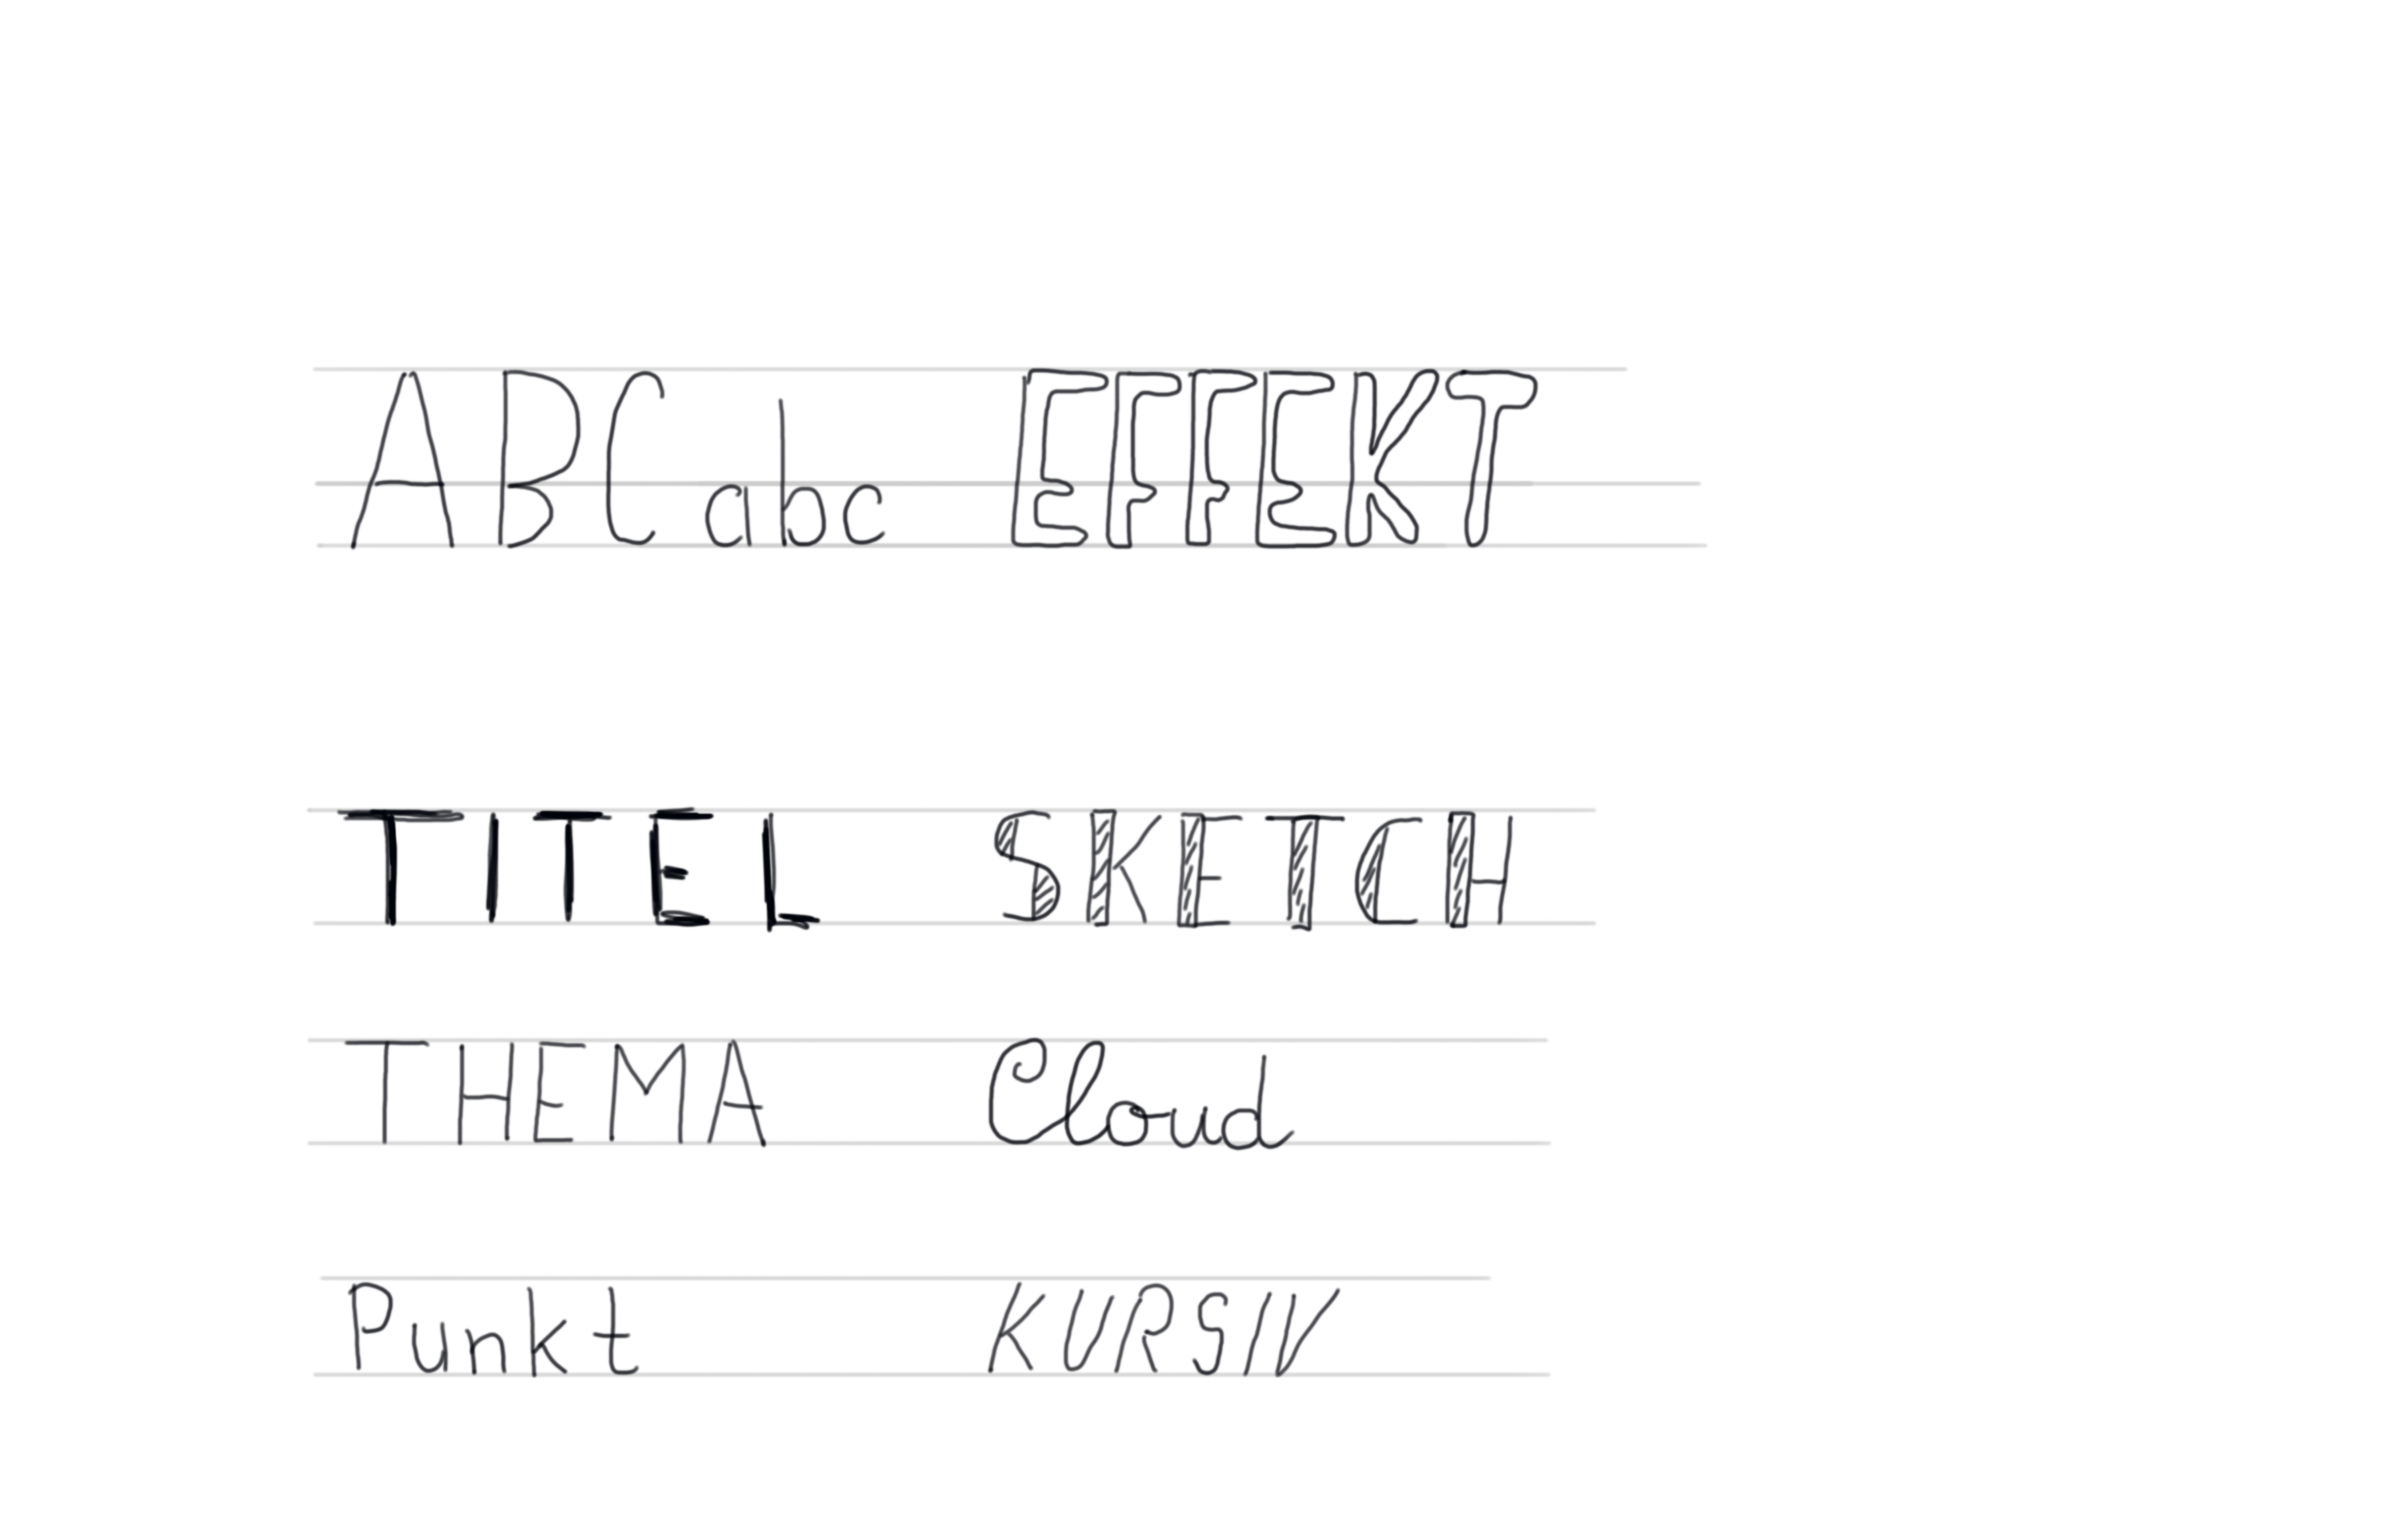 ABC abc EFFEKT
TITEL SKETCH
THEMA Cloud
Punkt KURSIV